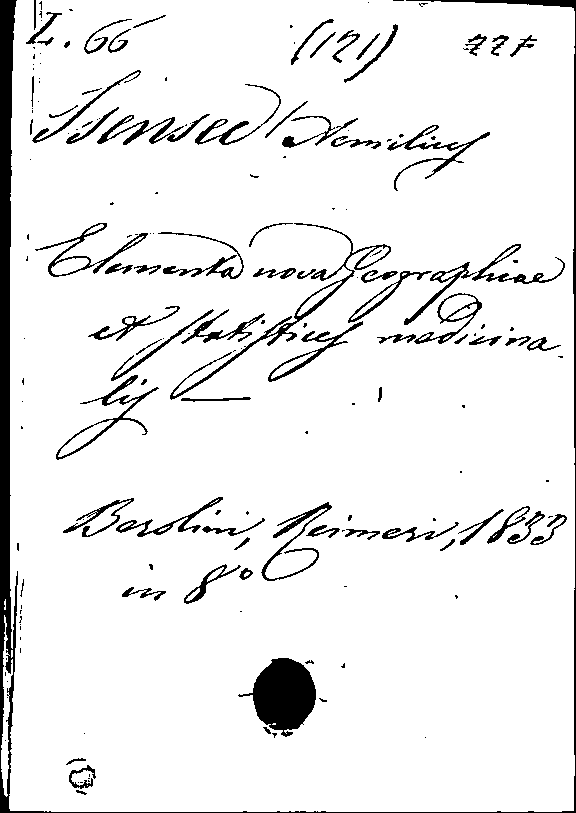 L. 66 (121) 77F
Isensee Aemilius
Elementa nova Geographiae
et statistices medicina
lis —
Berolini, Reimeri, 1833
in 8°